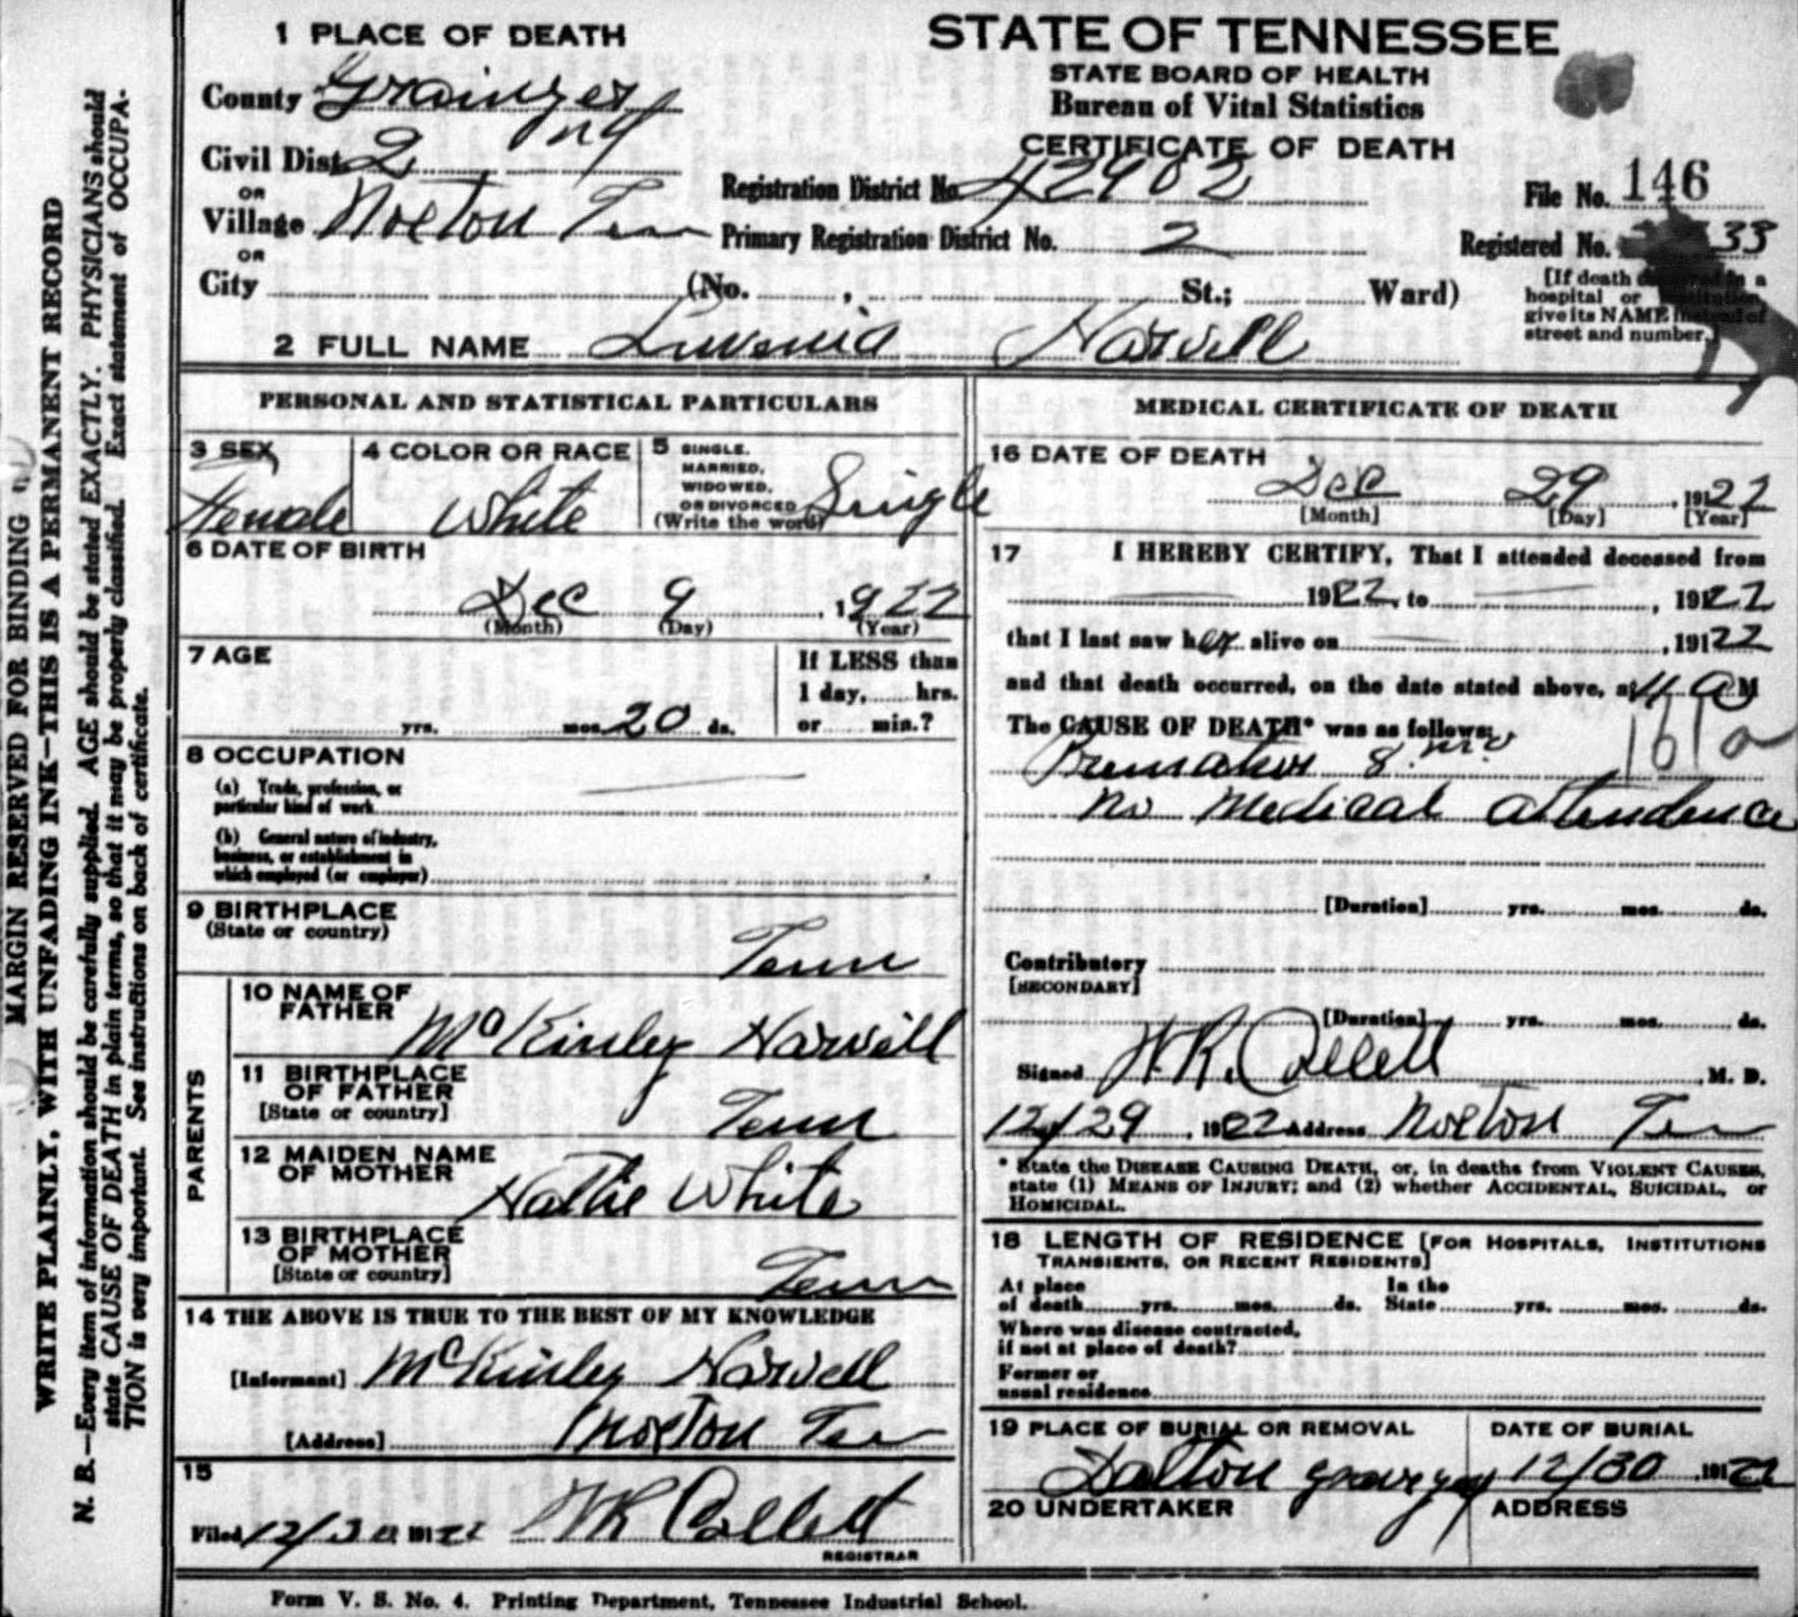 MARGIN RESERVED FOR BINDING
WRITE PLAINLY, WITH UNFADING INK—THIS IS A PERMANENT RECORD
N. B.—Every item of information should be carefully supplied. AGE should be stated EXACTLY. PHYSICIANS should
state CAUSE OF DEATH in plain terms, so that it may be properly classified. Exact statement of OCCUPA-
TION is very important. See instructions on back of certificate.
1 PLACE OF DEATH
County Grainger
Civil Dist. 2
OR
Village Norton Ten
OR
City (No. , St.; Ward)
STATE OF TENNESSEE
STATE BOARD OF HEALTH
Bureau of Vital Statistics
CERTIFICATE OF DEATH
Registration District No. 42902
Primary Registration District No. 2
File No. 146
Registered No. 33
[If death occurred in a
hospital or institution
give its NAME instead of
street and number.]
2 FULL NAME Luvenia Harvell
PERSONAL AND STATISTICAL PARTICULARS
3 SEX
Female
4 COLOR OR RACE
White
5 SINGLE,
MARRIED,
WIDOWED,
OR DIVORCED
(Write the word)
Single
6 DATE OF BIRTH
Dec 9 , 1922
(Month) (Day) (Year)
7 AGE
yrs. mos. 20 ds.
If LESS than
1 day, hrs.
or min.?
8 OCCUPATION
(a) Trade, profession, or
particular kind of work
(b) General nature of industry,
business, or establishment in
which employed (or employer)
9 BIRTHPLACE
(State or country)
Tenn
PARENTS
10 NAME OF
FATHER
McKinley Harvell
11 BIRTHPLACE
OF FATHER
[State or country]
Tenn
12 MAIDEN NAME
OF MOTHER
Hattie White
13 BIRTHPLACE
OF MOTHER
[State or country]
Tenn
14 THE ABOVE IS TRUE TO THE BEST OF MY KNOWLEDGE
[Informant] McKinley Harvell
[Address] Norton Ten
15
Filed 12/30 1922 WR Collett
REGISTRAR
MEDICAL CERTIFICATE OF DEATH
16 DATE OF DEATH
Dec 29 , 1922
[Month] [Day] [Year]
17 I HEREBY CERTIFY, That I attended deceased from
1922, to , 1922
that I last saw her alive on , 1922
and that death occurred, on the date stated above, at 4 a M
The CAUSE OF DEATH* was as follows:
8 mo
161a
no medical attendence
[Duration] yrs. mos. ds.
Contributory
[SECONDARY]
[Duration] yrs. mos. ds.
Signed W.R. Collett , M. D.
12/29 , 1922 Address Norton Ten
* State the DISEASE CAUSING DEATH, or, in deaths from VIOLENT CAUSES,
state (1) MEANS OF INJURY; and (2) whether ACCIDENTAL, SUICIDAL, or
HOMICIDAL.
18 LENGTH OF RESIDENCE [FOR HOSPITALS, INSTITUTIONS
TRANSIENTS, OR RECENT RESIDENTS]
At place In the
of death yrs. mos. ds. State yrs. mos. ds.
Where was disease contracted,
if not at place of death?
Former or
usual residence
19 PLACE OF BURIAL OR REMOVAL
Dalton
DATE OF BURIAL
12/30 1922
20 UNDERTAKER
ADDRESS
Form V. S. No. 4. Printing Department, Tennessee Industrial School.